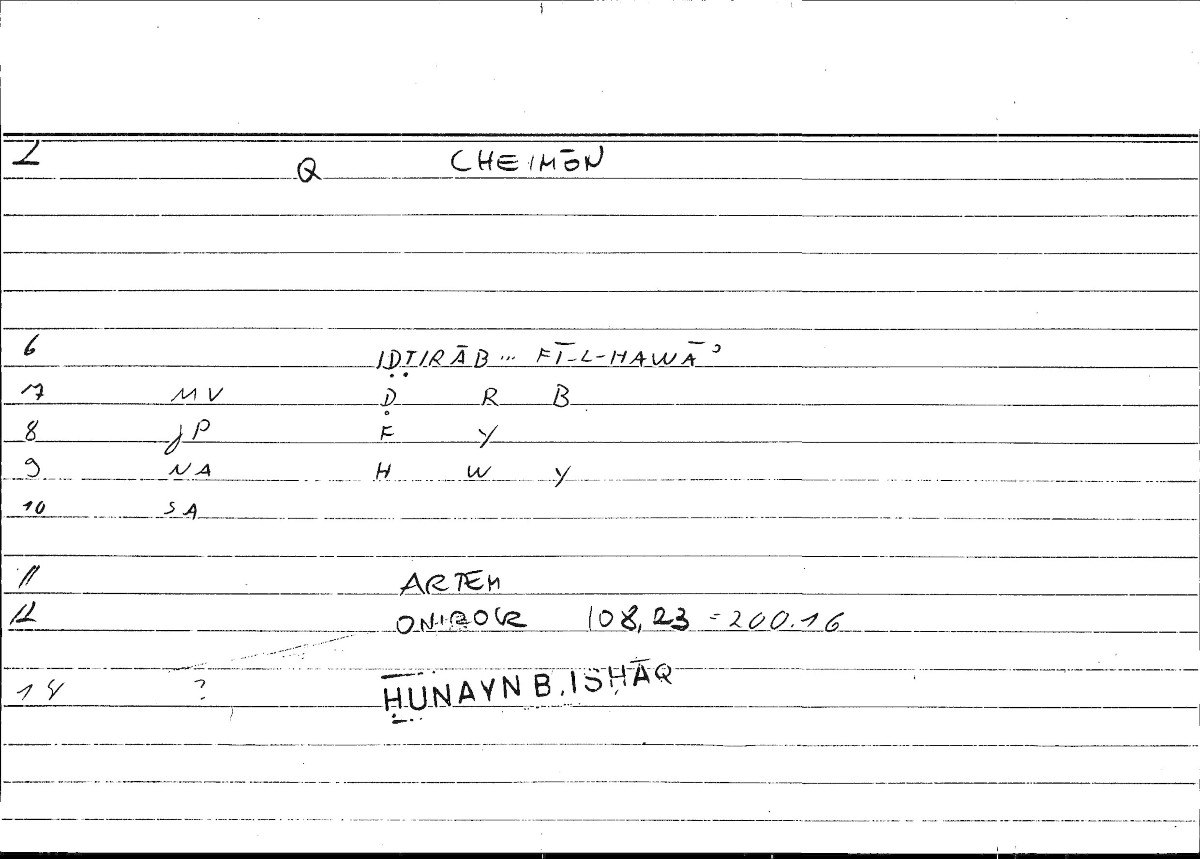 2 Q CHEIMŌN
6 IḌṬIRĀB... FĪ-L-HAWĀʾ
17 MV Ḍ R B
8 JP F Y
9 NA H W Y
10 SA
11 ARTEM
12 ONIROCR 108,23 = 200.16
14 ? ḤUNAYN B. ISḤĀQ